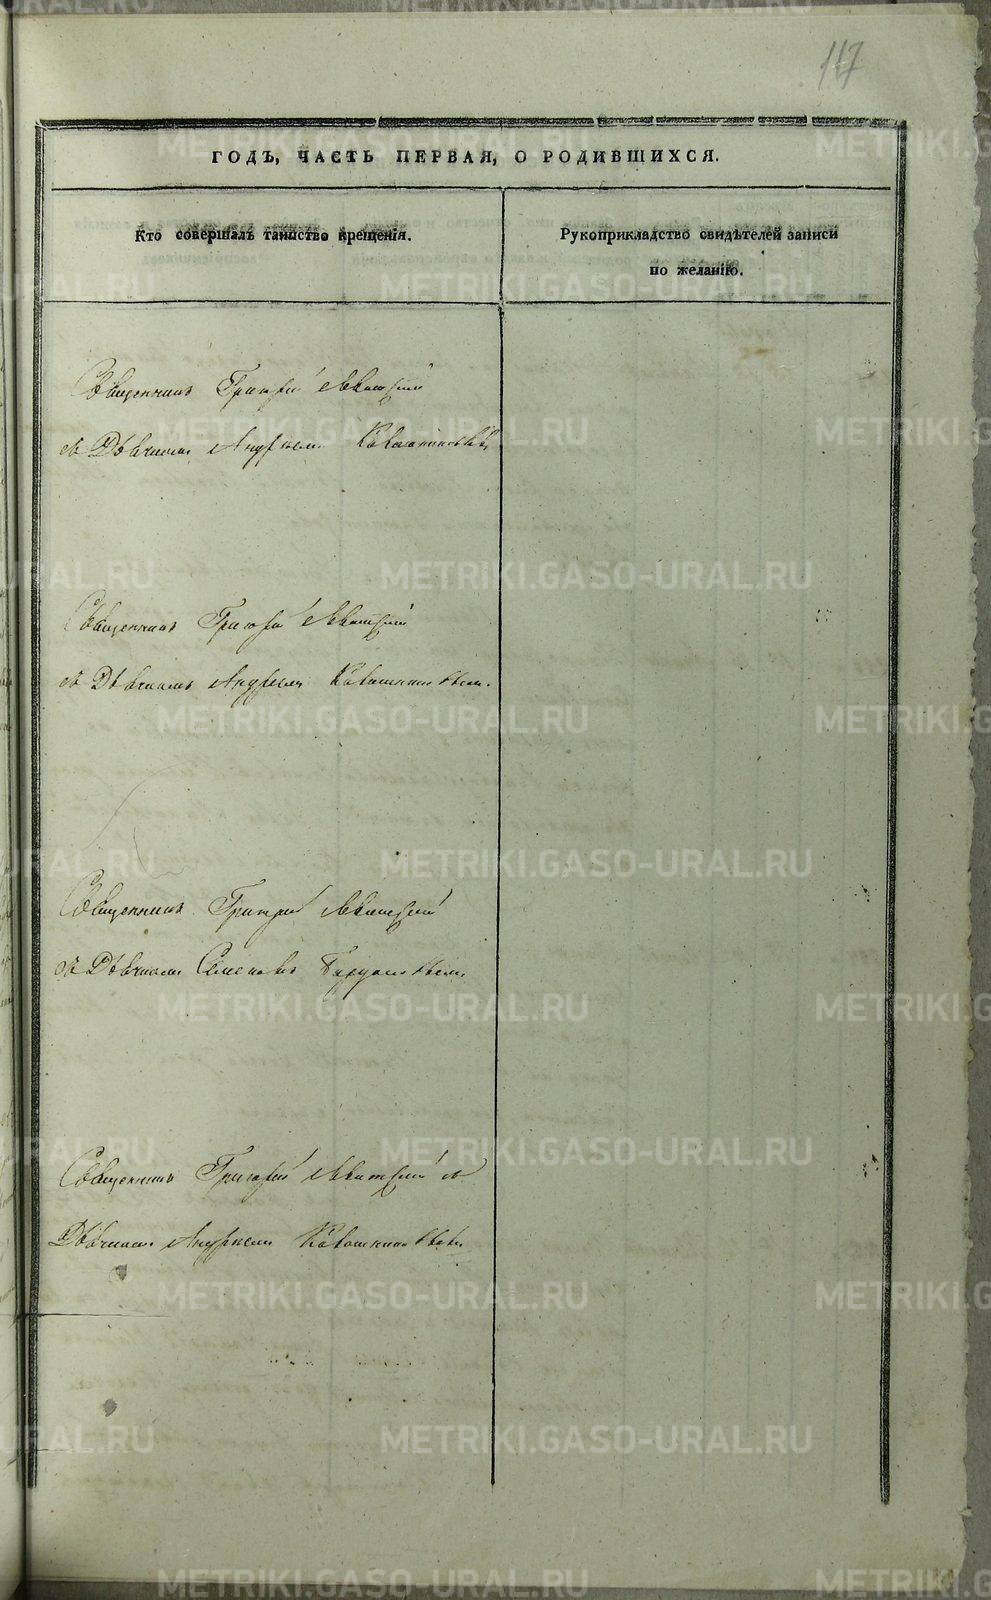 117
ГОДЪ, ЧАСТЬ ПЕРВАЯ, О РОДИВШИХСЯ.
Кто совершалъ таинство крещенія.
Рукоприкладство свидѣтелей записи
по желанію.
Священникъ Григорій
съ Дьячкомъ Андреемъ
Священникъ Григорій
съ Дьячкомъ Андреемъ
Священникъ Григорій
съ Дьячкомъ
Священникъ Григорій съ
Дьячкомъ Андреемъ
METRIKI.GASO-URAL.RU